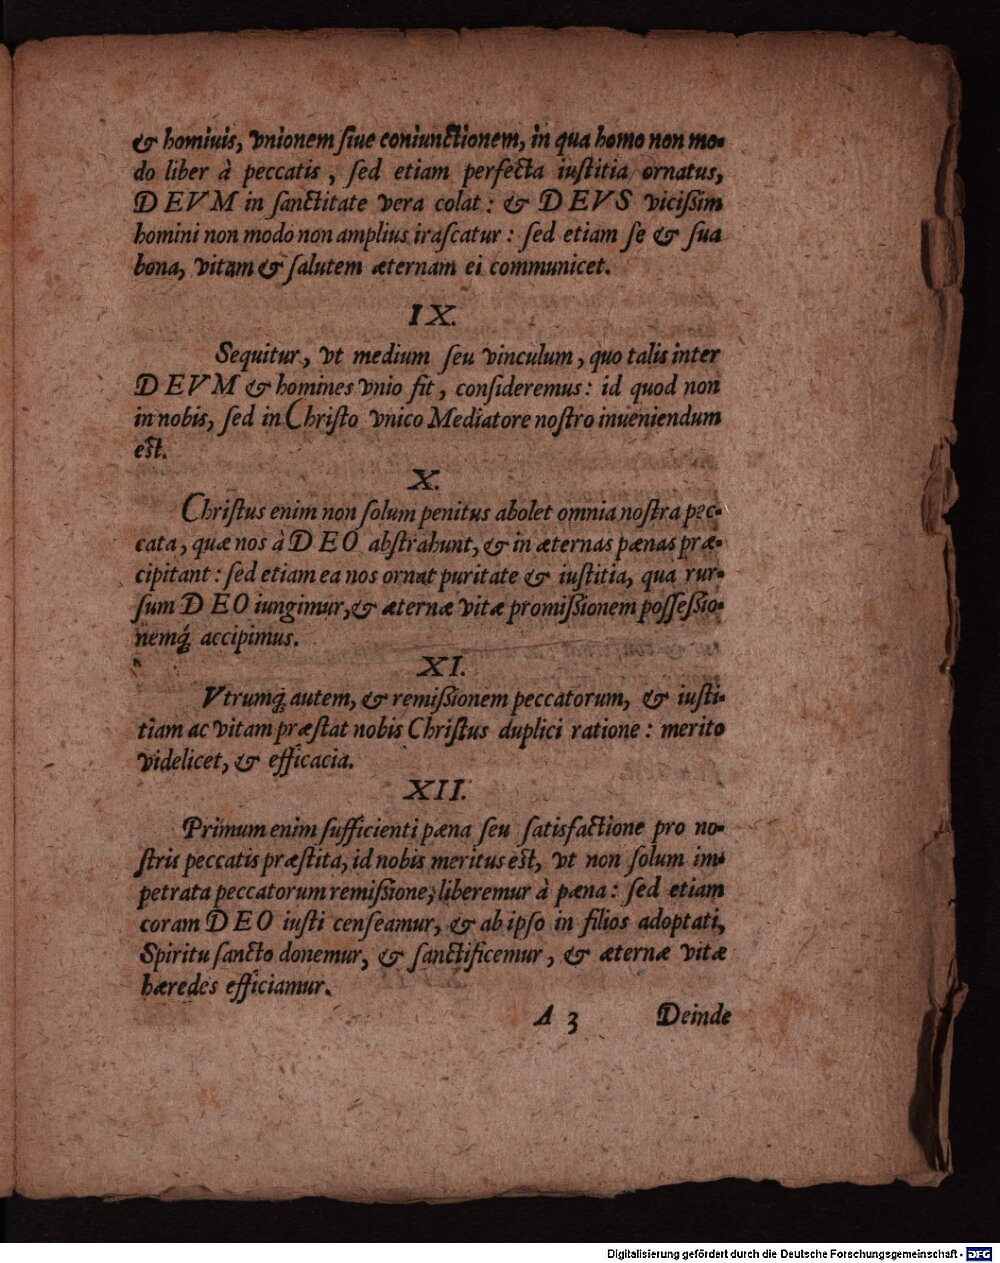 & homiuis, vnionem ſiue coniunctionem, in qua homo non mo-
do liber à peccatis, ſed etiam perfecta iuſtitia ornatus,
DEVM in ſanctitate vera colat: & DEVS viciſſim
homini non modo non amplius iraſcatur: ſed etiam ſe & ſua
bona, vitam & ſalutem æternam ei communicet.
IX.
Sequitur, vt medium ſeu vinculum, quo talis inter
DEVM & homines vnio fit, conſideremus: id quod non
in nobis, ſed in Chriſto vnico Mediatore noſtro inueniendum
eſt.
X.
Chriſtus enim non ſolum penitus abolet omnia noſtra pec-
cata, quæ nos à DEO abſtrahunt, & in æternas pænas præ-
cipitant: ſed etiam ea nos ornat puritate & iuſtitia, qua rur-
ſum DEO iungimur, & æternæ vitæ promiſſionem poſſeſſio-
nemq́; accipimus.
XI.
Vtrumq́; autem, & remiſſionem peccatorum, & iuſti-
tiam ac vitam præſtat nobis Chriſtus duplici ratione: merito
videlicet, & efficacia.
XII.
Primum enim ſufficienti pæna ſeu ſatisfactione pro no-
ſtris peccatis præſtita, id nobis meritus eſt, vt non ſolum im-
petrata peccatorum remiſſione, liberemur à pæna: ſed etiam
coram DEO iuſti cenſeamur, & ab ipſo in filios adoptati,
Spiritu ſancto donemur, & ſanctificemur, & æternæ vitæ
hæredes efficiamur.
A 3 Deinde
Digitalisierung gefördert durch die Deutsche Forschungsgemeinschaft - DFG